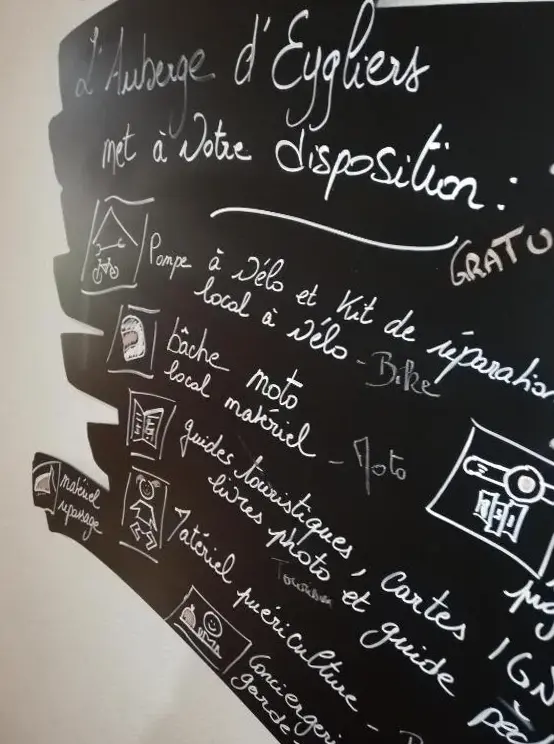 L'Auberge d'Eygliers
met à Votre disposition :
GRATU
Pompe à Vélo et Kit de réparation
local à Vélo - Bike
bâche moto
local matériel - Moto
guides touristiques, Cartes IGN
livres photo et guide pêc
Tourism
matériel
repassage
Matériel puériculture -
Conciergeri
garde